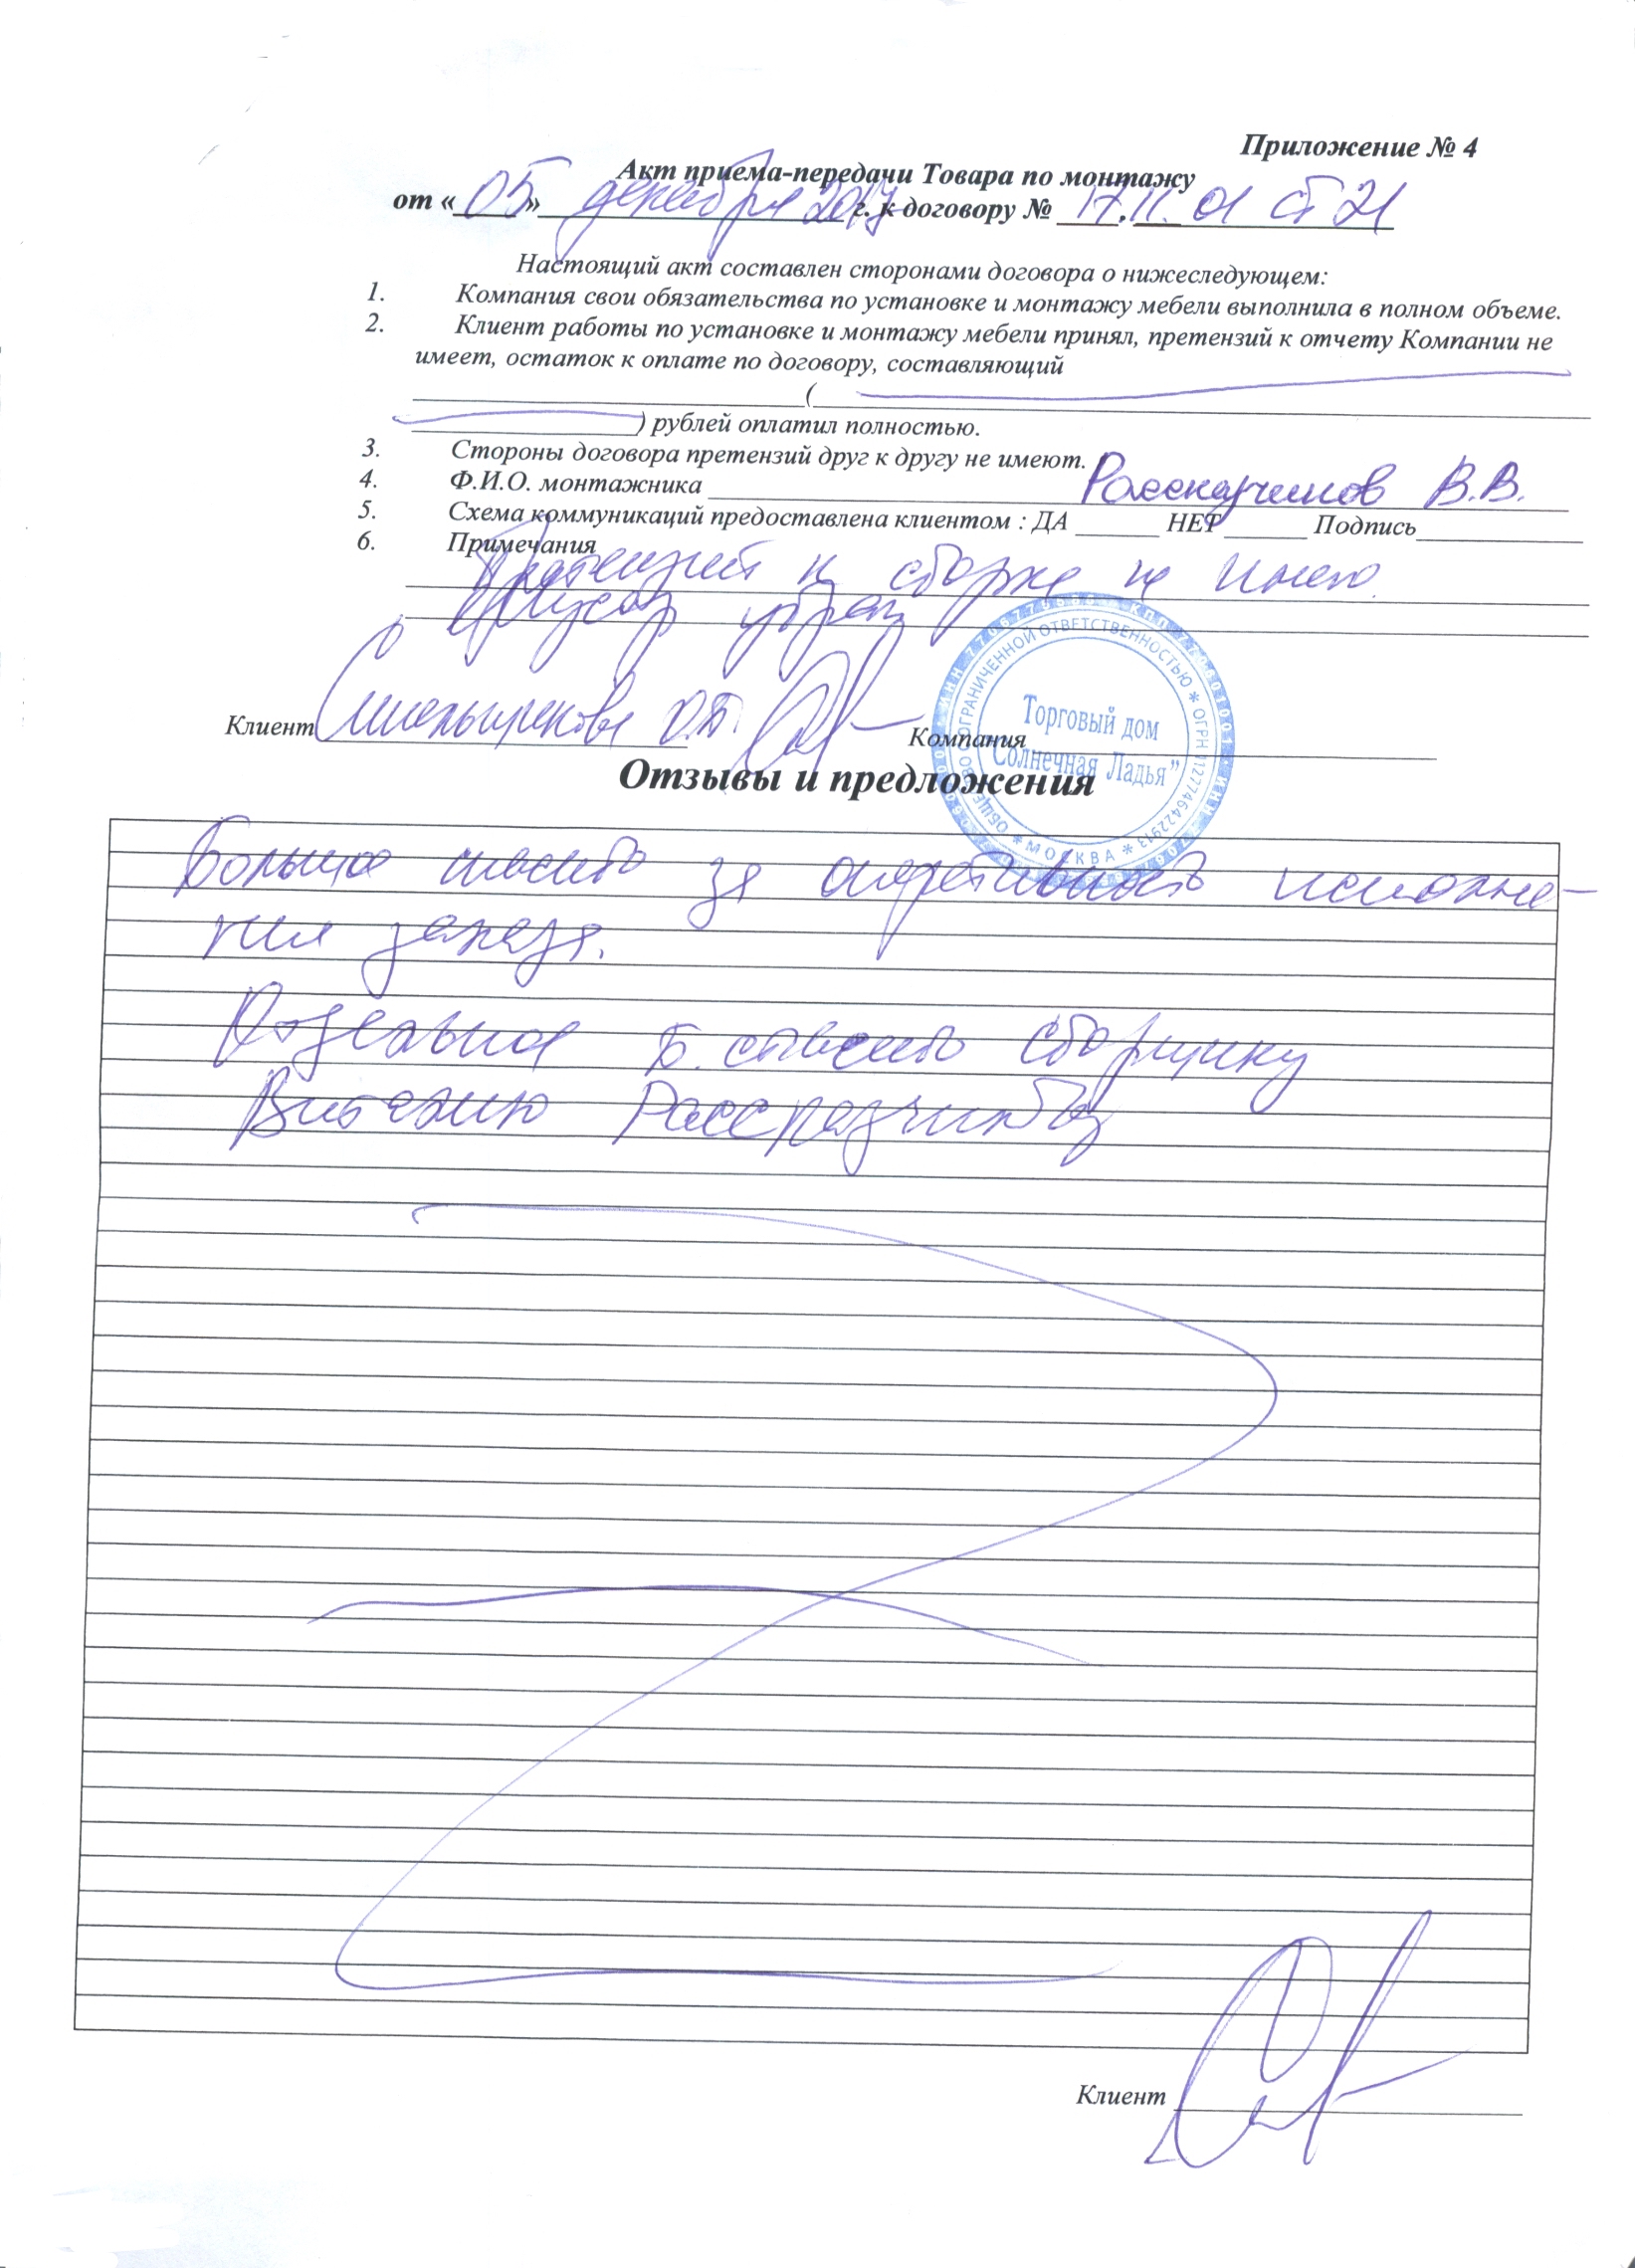 Приложение № 4
Акт приема-передачи Товара по монтажу
от «05» декабря 2017 г. к договору № 17.11.01 СТ 21
Настоящий акт составлен сторонами договора о нижеследующем:
1. Компания свои обязательства по установке и монтажу мебели выполнила в полном объеме.
2. Клиент работы по установке и монтажу мебели принял, претензий к отчету Компании не
имеет, остаток к оплате по договору, составляющий
(
) рублей оплатил полностью.
3. Стороны договора претензий друг к другу не имеют.
4. Ф.И.О. монтажника Рассказчиков В.В.
5. Схема коммуникаций предоставлена клиентом : ДА НЕТ Подпись
6. Примечания
Претензий к сборке не имею.
Мусор убран
Клиент О.П. Компания
ОБЩЕСТВО С ОГРАНИЧЕННОЙ ОТВЕТСТВЕННОСТЬЮ * ОГРН 1127746422913 * МОСКВА *
Торговый дом
"Солнечная Ладья"
Отзывы и предложения
Большое спасибо за оперативность исполне-
ния заказа.
Отдельное б. спасибо сборщику
Виталию Рассказчикову
Клиент